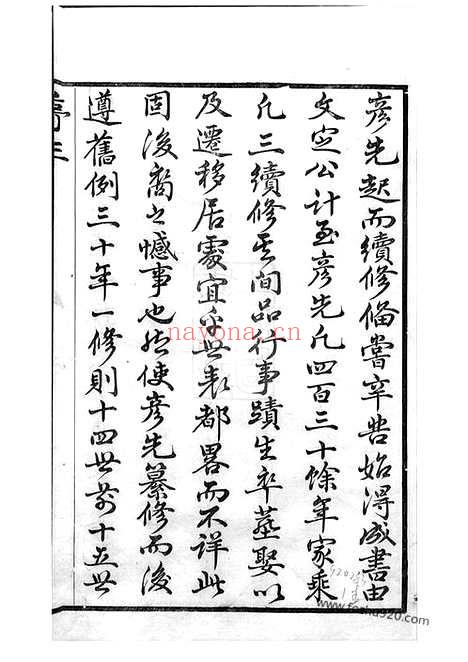 彦先起而續修備嘗辛苦始得成書由
文定公計至彦先凡四百三十餘年家乘
凡三續修其間品行事蹟生卒墓娶以
及遷移居處宜乎世表都畧而不詳此
固後裔之憾事也然使彦先纂修而後
遵舊例三十年一修則十四世前十五世
nayona.cn